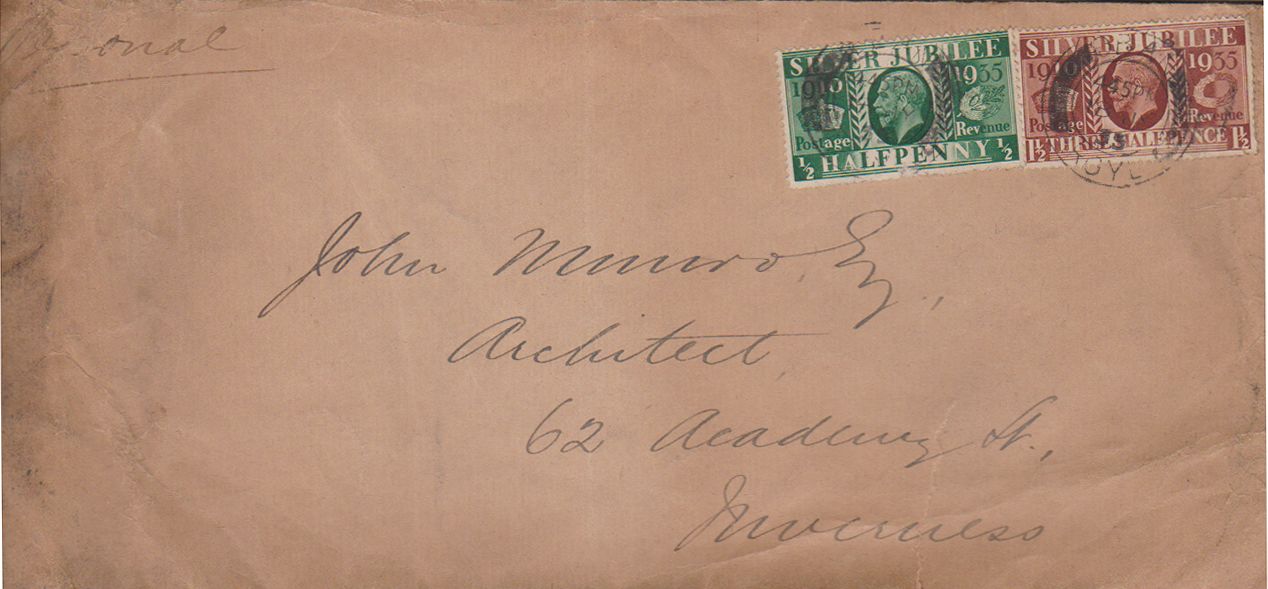 Personal
SILVER JUBILEE
1910 1935
Postage Revenue
½ HALFPENNY ½
SILVER JUBILEE
1910 1935
Postage Revenue
1½ THREE HALFPENCE 1½
45PM
35
John Munro, Esq.,
Architect,
62 Academy St.,
Inverness